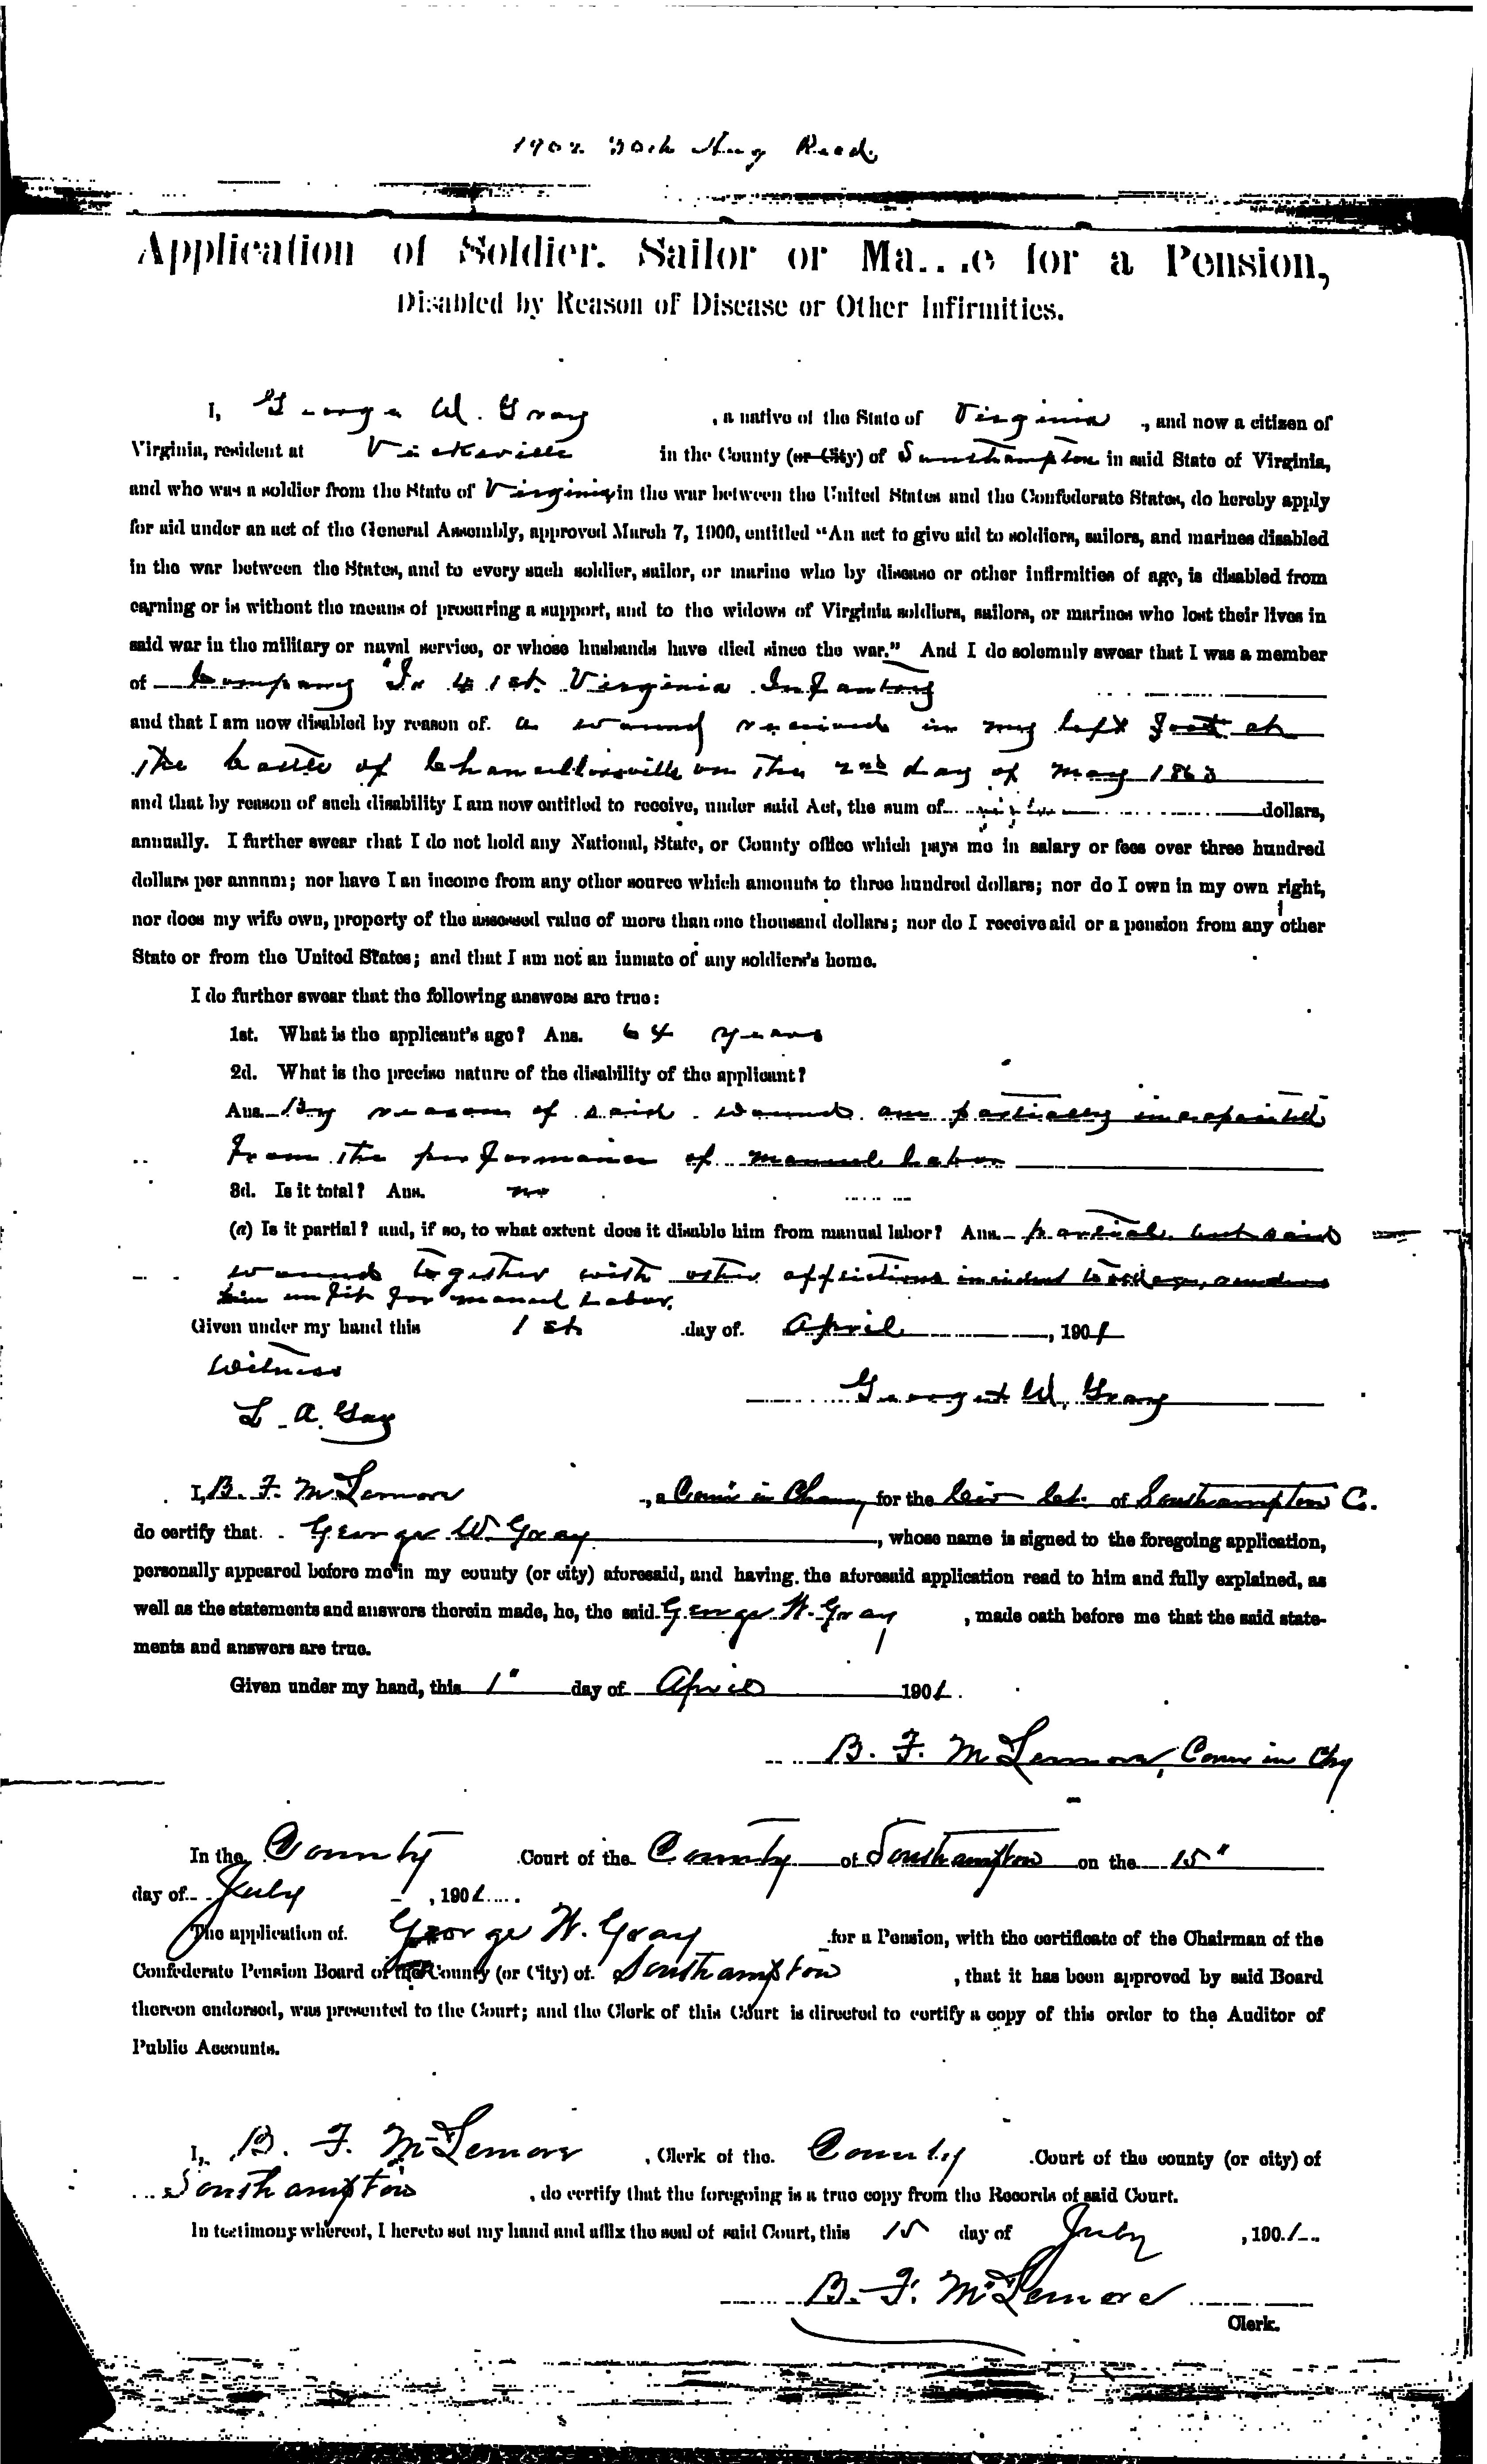 1902 30th Aug Recd.
Application of Soldier, Sailor or Ma...e for a Pension,
Disabled by Reason of Disease or Other Infirmities.
I, George W. Gray , a native of the State of Virginia , and now a citizen of
Virginia, resident at Vicksville in the County (or City) of Southampton in said State of Virginia,
and who was a soldier from the State of Virginia in the war between the United States and the Confederate States, do hereby apply
for aid under an act of the General Assembly, approved March 7, 1900, entitled “An act to give aid to soldiers, sailors, and marines disabled
in the war between the States, and to every such soldier, sailor, or marine who by disease or other infirmities of age, is disabled from
earning or is without the means of procuring a support, and to the widows of Virginia soldiers, sailors, or marines who lost their lives in
said war in the military or naval service, or whose husbands have died since the war.” And I do solemnly swear that I was a member
of Company 41st Virginia Infantry
and that I am now disabled by reason of a wound received in my left foot at
the battle of Chancellorsville on the 2nd day of May 1863
and that by reason of such disability I am now entitled to receive, under said Act, the sum of dollars,
annually. I further swear that I do not hold any National, State, or County office which pays me in salary or fees over three hundred
dollars per annum; nor have I an income from any other source which amounts to three hundred dollars; nor do I own in my own right,
nor does my wife own, property of the assessed value of more than one thousand dollars; nor do I receive aid or a pension from any other
State or from the United States; and that I am not an inmate of any soldiers's home.
I do further swear that the following answers are true:
1st. What is the applicant's age? Ans. 64 years
2d. What is the precise nature of the disability of the applicant?
Ans. By reason of said wound am partially incapacitated
from the performance of manual labor
3d. Is it total? Ans. no
(a) Is it partial? and, if so, to what extent does it disable him from manual labor? Ans. partial but said
wound together with other afflictions incident to old age, renders
him unfit for manual labor.
Given under my hand this 1st day of April , 1901
Witness
L. A. Gay
George W. Gray
I, B. F. McLemore , a Com'r in Chancy for the Cir Ct. of Southampton Co.
do certify that George W. Gray , whose name is signed to the foregoing application,
personally appeared before me in my county (or city) aforesaid, and having the aforesaid application read to him and fully explained, as
well as the statements and answers therein made, he, the said George W. Gray , made oath before me that the said state-
ments and answers are true.
Given under my hand, this 1" day of April 1901.
B. F. McLemore, Comr in Chy
In the County Court of the County of Southampton on the 15"
day of July , 1901
The application of George W. Gray for a Pension, with the certificate of the Chairman of the
Confederate Pension Board of the County (or City) of Southampton , that it has been approved by said Board
thereon endorsed, was presented to the Court; and the Clerk of this Court is directed to certify a copy of this order to the Auditor of
Public Accounts.
I, B. F. McLemore , Clerk of the County Court of the county (or city) of
Southampton , do certify that the foregoing is a true copy from the Records of said Court.
In testimony whereof, I hereto set my hand and affix the seal of said Court, this 15 day of July , 1901
B. F. McLemore
Clerk.